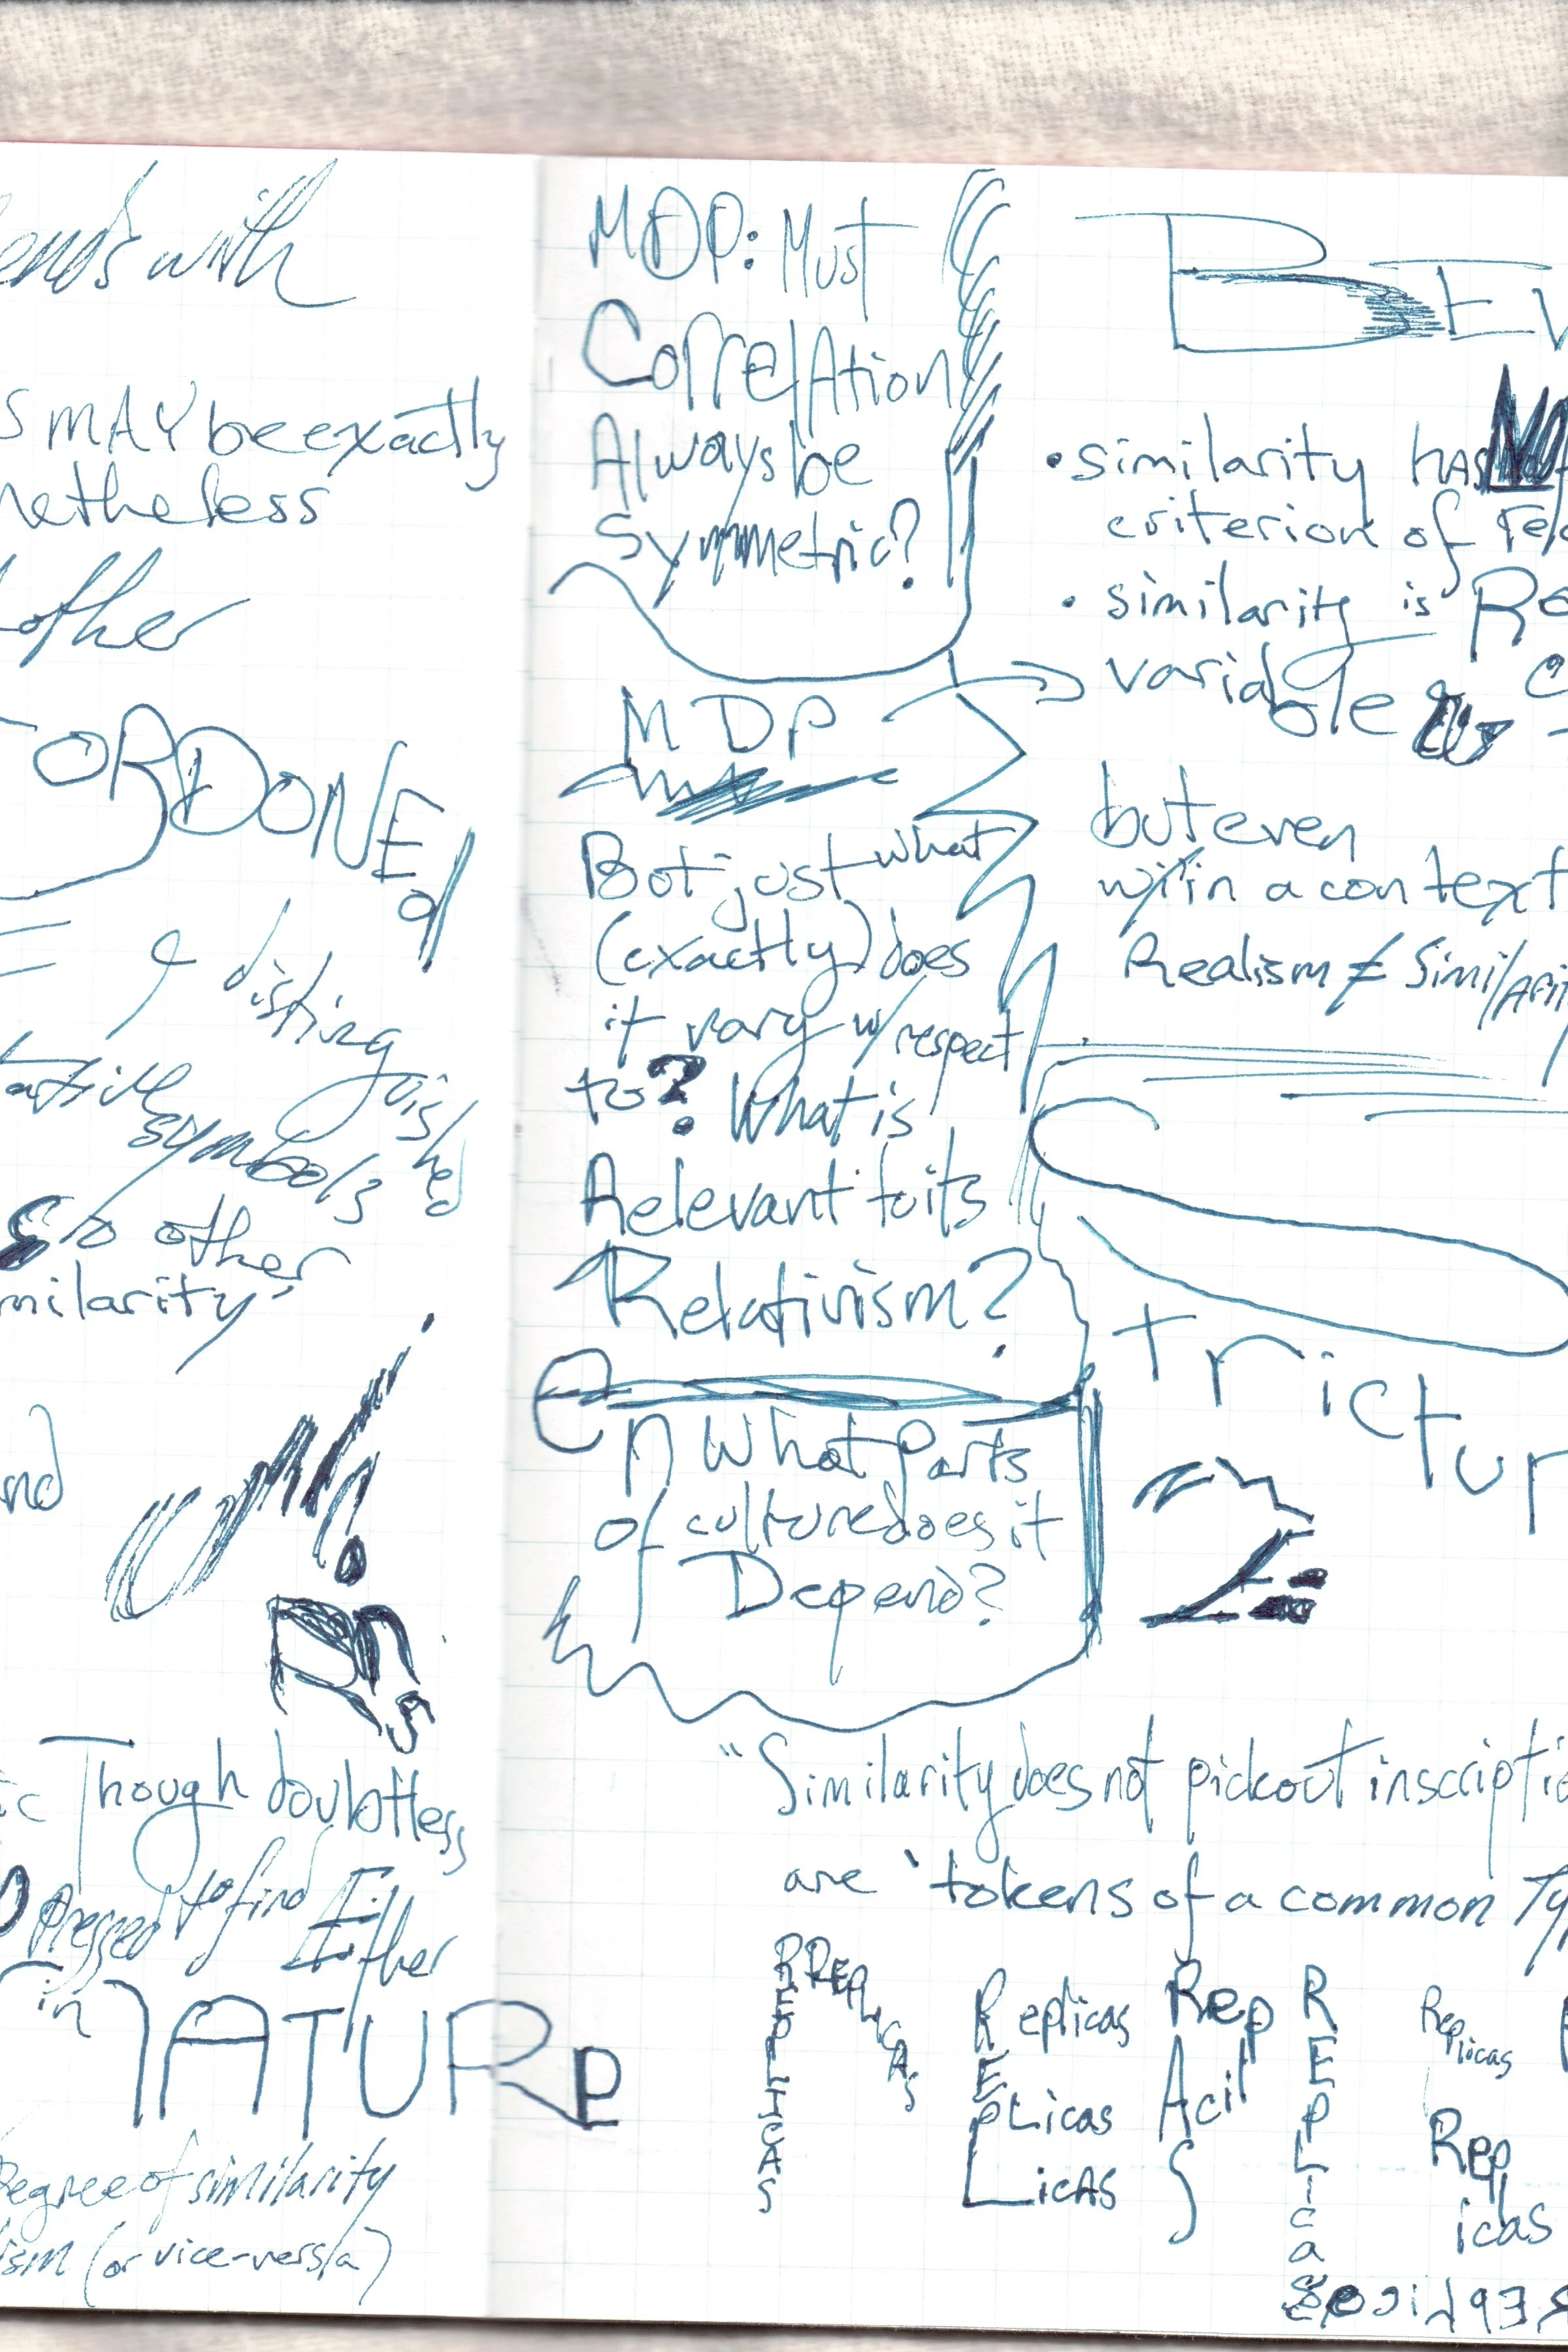 ends with
S MAY be exactly
netheless
other
ORDONE
& distinguished
symbols
other
milarity
nd
Though doubtless
Pressed to find Either
in NATURE
Degree of similarity
ism (or vice-versa)
MDP: Must
CorrelAtion
Always be
Symmetric?
MDP
But just what
(exactly) does
it vary w/ respect
to? What is
Relevant to its
Relativism?
On What Parts
of culture does it
Depend?
BEV
• similarity hAS NO
criterion of
• similarity is
variable
but even
w/in a context
Realism ≠ SimilArit
trictur
2:
"Similarity does not pick out inscriptio
are 'tokens of a common Ty
REPLICAS
RREPLICAS
Replicas
REpLicas
LicAS
Rep
Acil
S
REPLIcas
Replicas
Rep
licas
Replicas